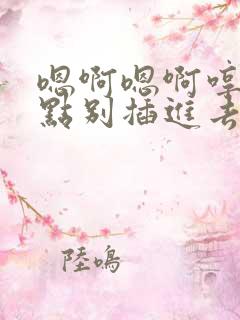 嗯啊嗯啊哼
點别插進去
陸鳴